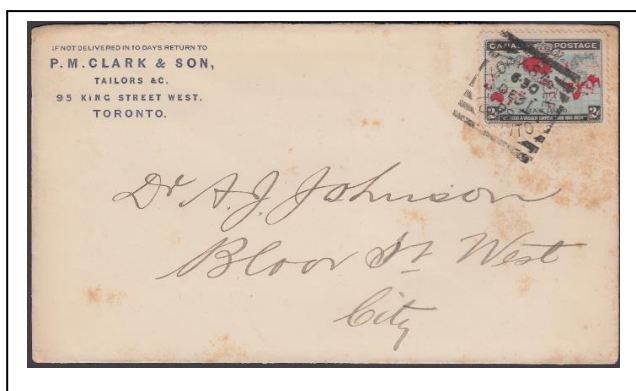 IF NOT DELIVERED IN 10 DAYS RETURN TO
P. M. CLARK & SON,
TAILORS &C.
95 KING STREET WEST.
TORONTO.
CANADA POSTAGE
6 30
DE
2
Dr A. J. Johnson
Bloor St West
City